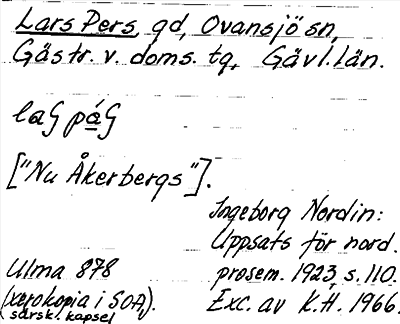 Lars Pers, gd, Ovansjö sn,
Gästr. v. doms. tg, Gävl. län.
laG páG
["Nu Åkerbergs"].
Ingeborg Nordin:
Uppsats för nord.
prosem. 1923, s. 110.
Exc. av K.H. 1966.
Ulma 878
(xerokopia i SOA,
särsk. kapsel).